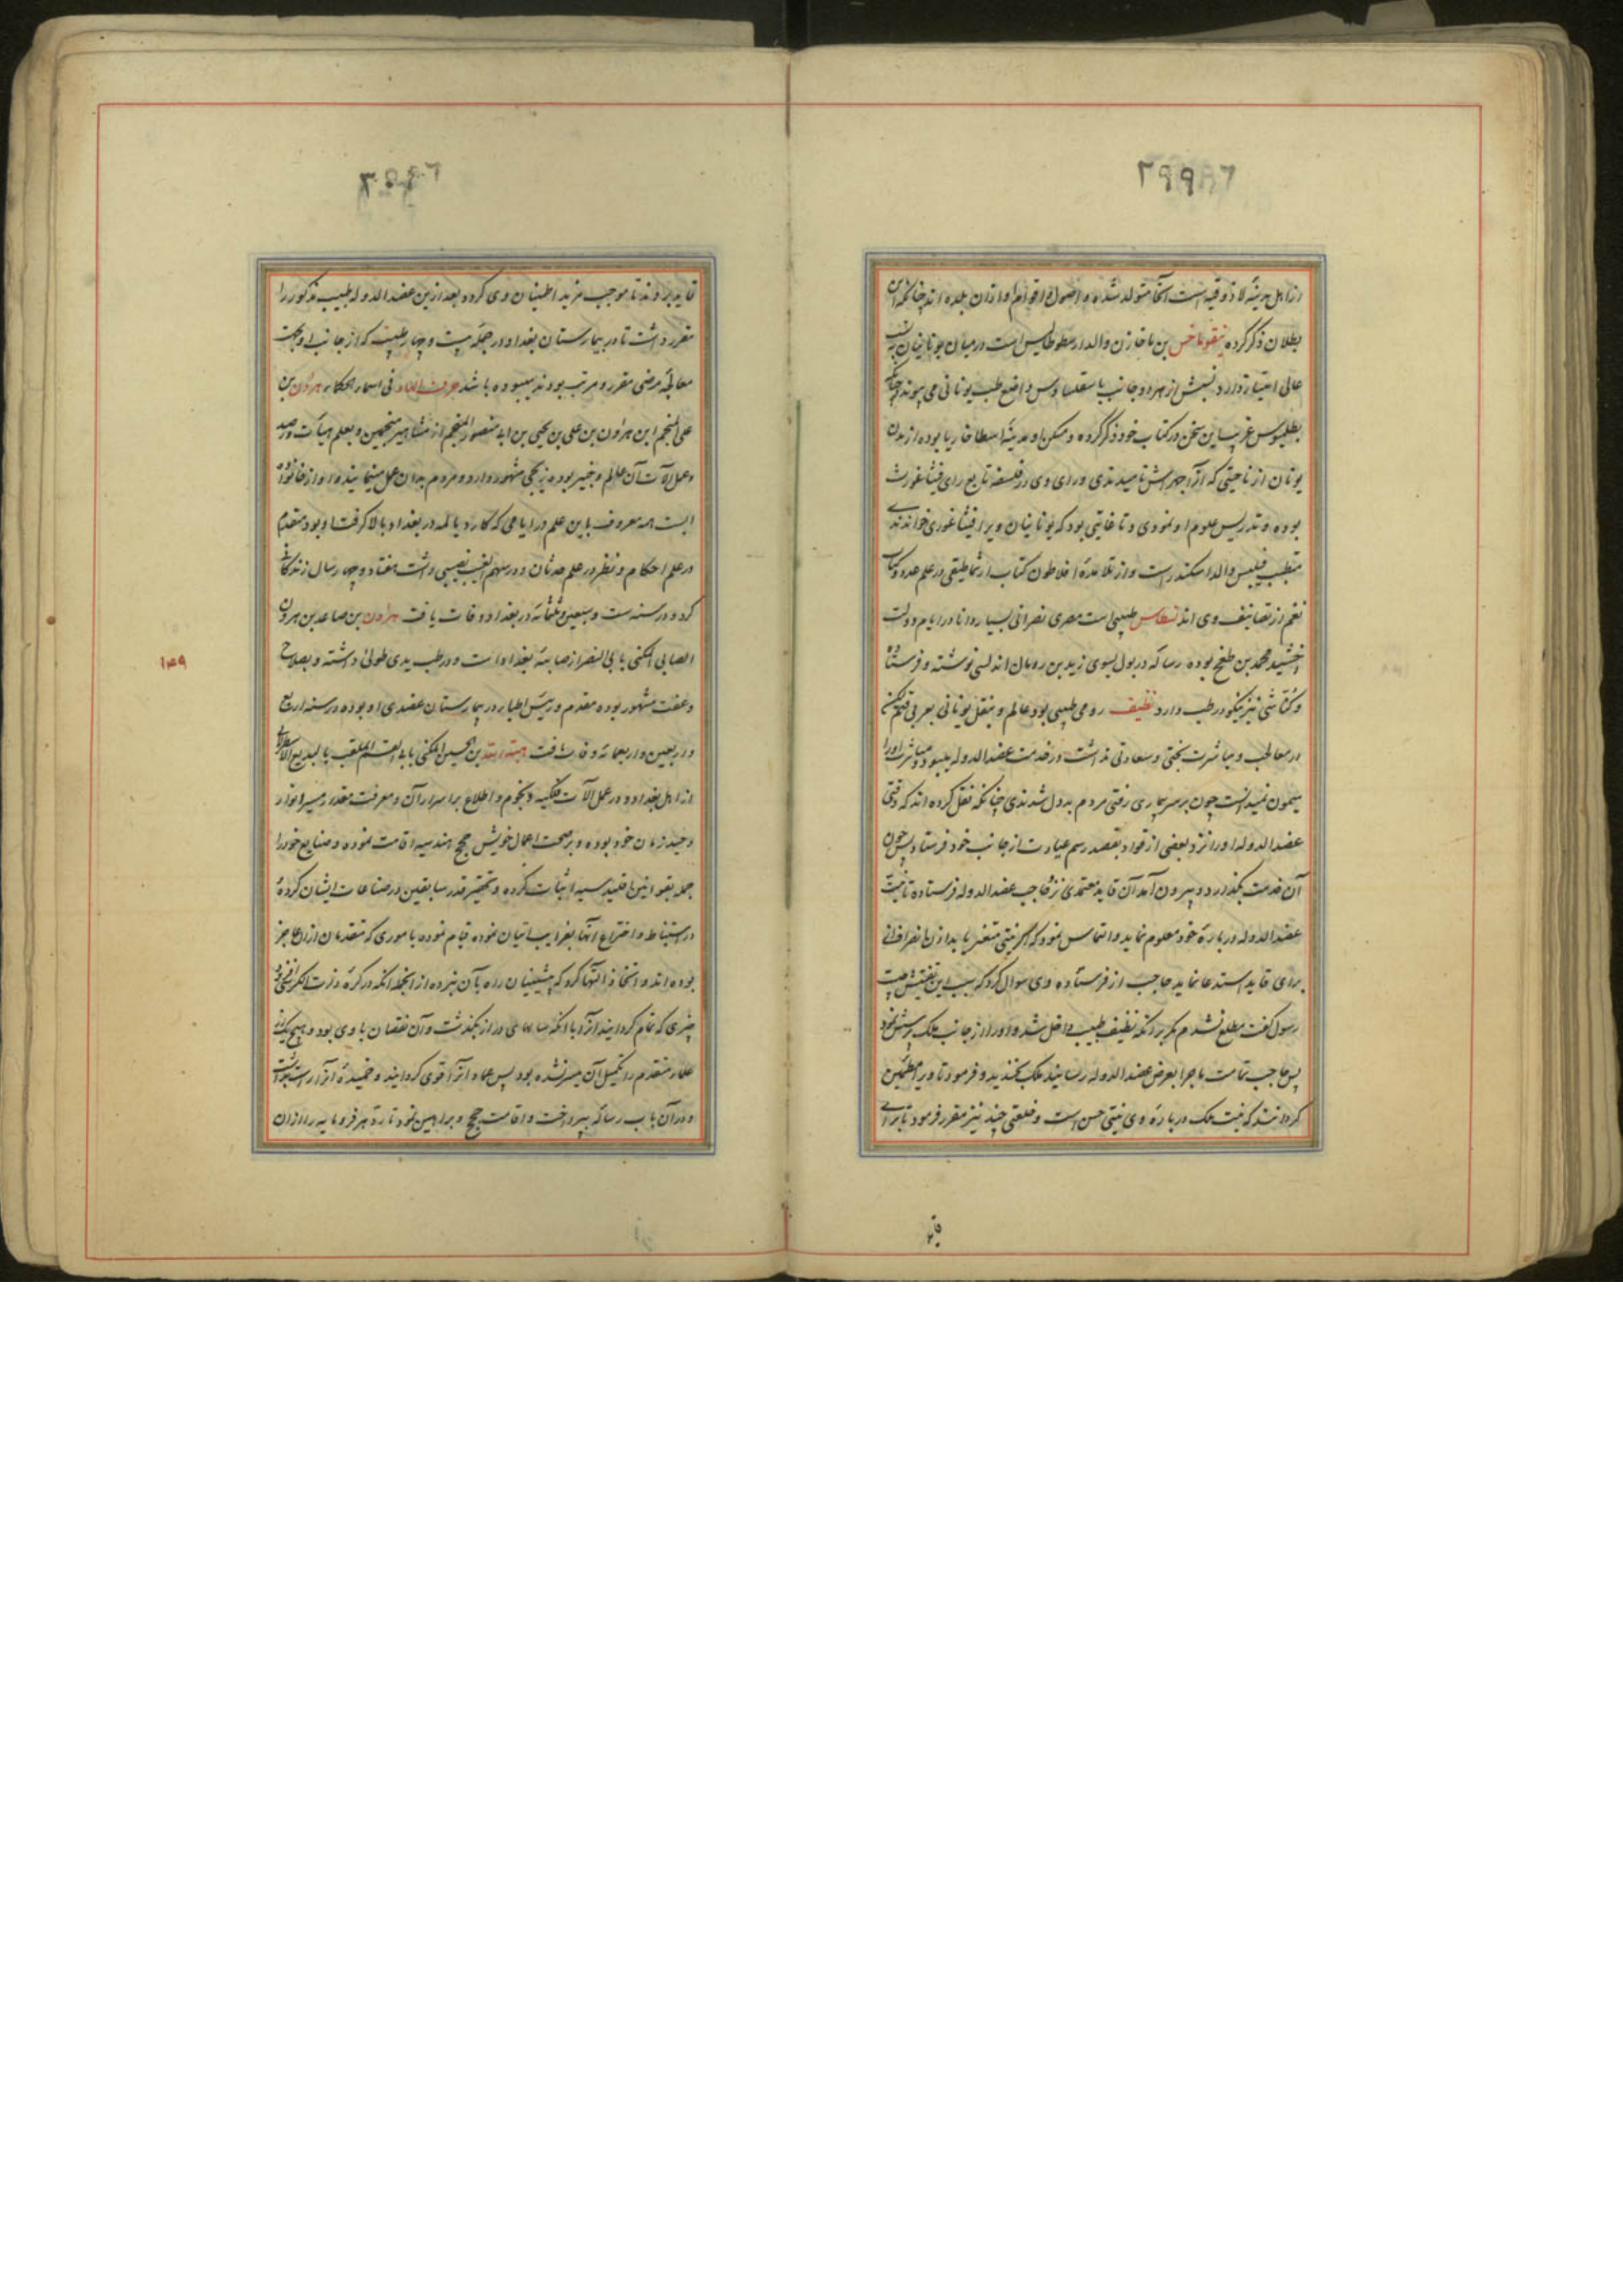 ۲۹۹
از اهل مدینهٔ لاذوقیه است آنجا متولد شده و اصول و اقوام او از آن بلده اند چنانکه ابن
بطلان ذکر کرده نیقوماخس بن ماخازن والد ارسطوطالیس است در میان یونانیان به نسب
عالی امتیاز دارد نسبش از هر دو جانب باسقلبیادس واضع طب یونانی می پیوندد چنانکه
بطلمیوس غریب این سخن در کتاب خود ذکر کرده و مسکن او مدینهٔ اسطاخاریا بوده از مدن
یونان از ناحیتی که آنرا جهراش نامیدندی و رای وی در فلسفه تابع رای فیثاغورث
بوده و تدریس علوم او نمودی و تا غایتی بود که یونانیان ویرا فیثاغوری خواندندی
متطبب فیلبس والد اسکندر است و از تلامذهٔ افلاطون کتاب ارثماطیقی در علم عدد و کتاب
نغم از تصانیف وی اند نسطاس طبیبی است مصری نصرانی بسیار دانا در ایام دولت
اخشید محمد بن طغج بوده رساله در بول بسوی زید بن رومان اندلسی نوشته و فرستاده
و کناشی نیز نیکو در طب دارد نظیف رومی طبیبی بود عالم و بنقل یونانی بعربی قیم لکن
در معالجه و مباشرت بختی و سعادتی نداشت در خدمت عضد الدوله میبود و مباشرت او را
میمون نمیدانست چون بر سر بیماری رفتی مردم بد دل شدندی چنانکه نقل کرده اند که وقتی
عضد الدوله او را نزد بعضی از قواد بقصد رسم عیادت از جانب خود فرستاد پس چون
آن خدمت بگذارد و بیرون آمد آن قاید معتمدی نزد حاجب عضد الدوله فرستاده تا نیت
عضد الدوله در بارهٔ خود معلوم نماید و التماس نمود که اگر نیتی متغیر یابد اذن انصرافی
برای قاید استدعا نماید حاجب از فرستاده وی سوال کرد که سبب این تفتیش چیست
رسول گفت مطلع نشدم مگر بر آنکه نظیف طبیب داخل شد و او را از جانب ملک پرسش نمود
پس حاجب تمامت ماجرا بعرض عضد الدوله رسانید ملک بخندید و فرمود تا ویرا مطمئن
گردانند که نیت ملک در بارهٔ وی نیتی حسن است و خلعتی چند نیز مقرر فرمود تا برای
قاید
قاید برادند تا موجب مزید اطمینان وی کردد بعد ازین عضد الدوله طبیب مذکور را
مقرر داشت تا در بیمارستان بغداد در جمله بیست و چهار طبیب که از جانب او بجهت
معالجهٔ مرضی مقرر و مرتب بودند میبوده باشد حرف الهاء فی اسماء الحکماء هرون بن
علی المنجم ابن هارون بن علی بن یحیی بن ابی منصور المنجم از مشاهیر منجمین و بعلم هیأت و رصد
و عمل آلات آن عالم و خبیر بوده زیجی مشهور دارد و مردم بدان عمل مینمایند و او از خانواده
ایست همه معروف باین علم در ایامی که کار دیالمه در بغداد بالا گرفت او بود مقدم
در علم احکام و نظر در علم حدثان و در سهم الغیب نصیبی داشت هفتاد و چهار سال زندگانی
کرد و در سنه ست و سبعین و ثلثمائه در بغداد وفات یافت هارون بن صاعد بن هرون
الصابی المکنی بابی النصر از صابئهٔ بغداد است و در طب یدی طولی داشته و بصلاح
و عفت مشهور بوده مقدم و رئیس اطباء در بیمارستان عضدی او بوده در سنه اربع
و اربعین و اربعمائه وفات یافت هبة الله بن الحسین المکنی بابی القسم الملقب بالبدیع الاسطرلابی
از اهل بغداد و در عمل آلات فلکیه و نجوم و اطلاع بر اسرار آن و معرفت مقدار مسیر انوار
وحید زمان خود بوده و بر صحت اعمال خویش حجج هندسیه اقامت نموده و صنایع خود را
جمله بقوانین اقلیدسیه اثبات کرده و تحقیر قدر سابقین در صناعات ایشان کرده
در استنباط و اختراع آنها بغرایب اتیان نموده قیام نموده باموری که متقدمان از آن عاجز
بوده اند و اتخاذ آلتها کرد که پیشینیان راه بآن نبرده از آنجمله آنکه در کرهٔ ذات الکرسی
چیزی که تمام گردانید آنرا با آنکه سالهای دراز بگذشت و آن نقصان با وی بود و هیچ یک از
علماء متقدم را تکمیل آن میسر نشده بود پس عماد آنرا قوی گردانید و خمیدهٔ آنرا راست
و در آن باب رساله بپرداخت و اقامت حجج و براهین نمود تا رد هر فرومایه را از آن
۱۴۹